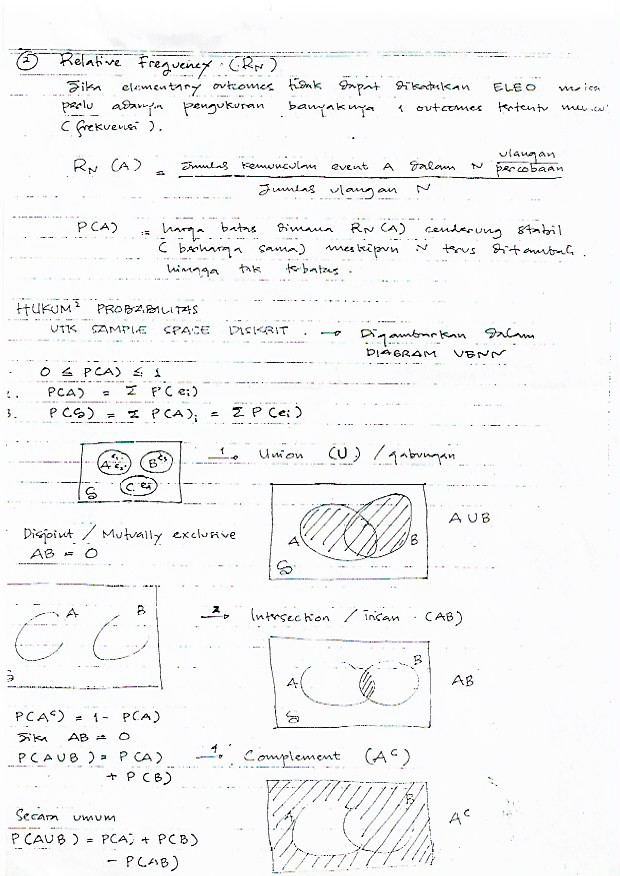 ② Relative Frequency. (RN)
Jika elementary outcomes tidak dapat dikatakan ELEO maka
perlu adanya pengukuran banyaknya outcomes tertentu
(frekuensi).
RN (A) = Jumlah kemunculan event A dalam N ulangan percobaan
Jumlah ulangan N
P(A) = harga batas dimana RN(A) cenderung stabil
(berharga sama) meskipun N terus ditambah
hingga tak terbatas.
HUKUM² PROBABILITAS
UTK SAMPLE SPACE DISKRIT. → Digambarkan dalam
DIAGRAM VENN
0 ≤ P(A) ≤ 1
2. P(A) = Σ P(ei)
3. P(S) = Σ P(A)i = Σ P(ei)
1→ Union (U) / gabungan
A e1 e2 B e3
C ei
S
A B
S
A U B
Disjoint / Mutually exclusive
AB = 0
A B
S
2→ Intersection / irisan. (AB)
A B
S
AB
P(Aᶜ) = 1 - P(A)
Jika AB = 0
P(AUB) = P(A)
+ P(B)
4→ Complement (Aᶜ)
A B
Aᶜ
Secara umum
P(AUB) = P(A) + P(B)
- P(AB)